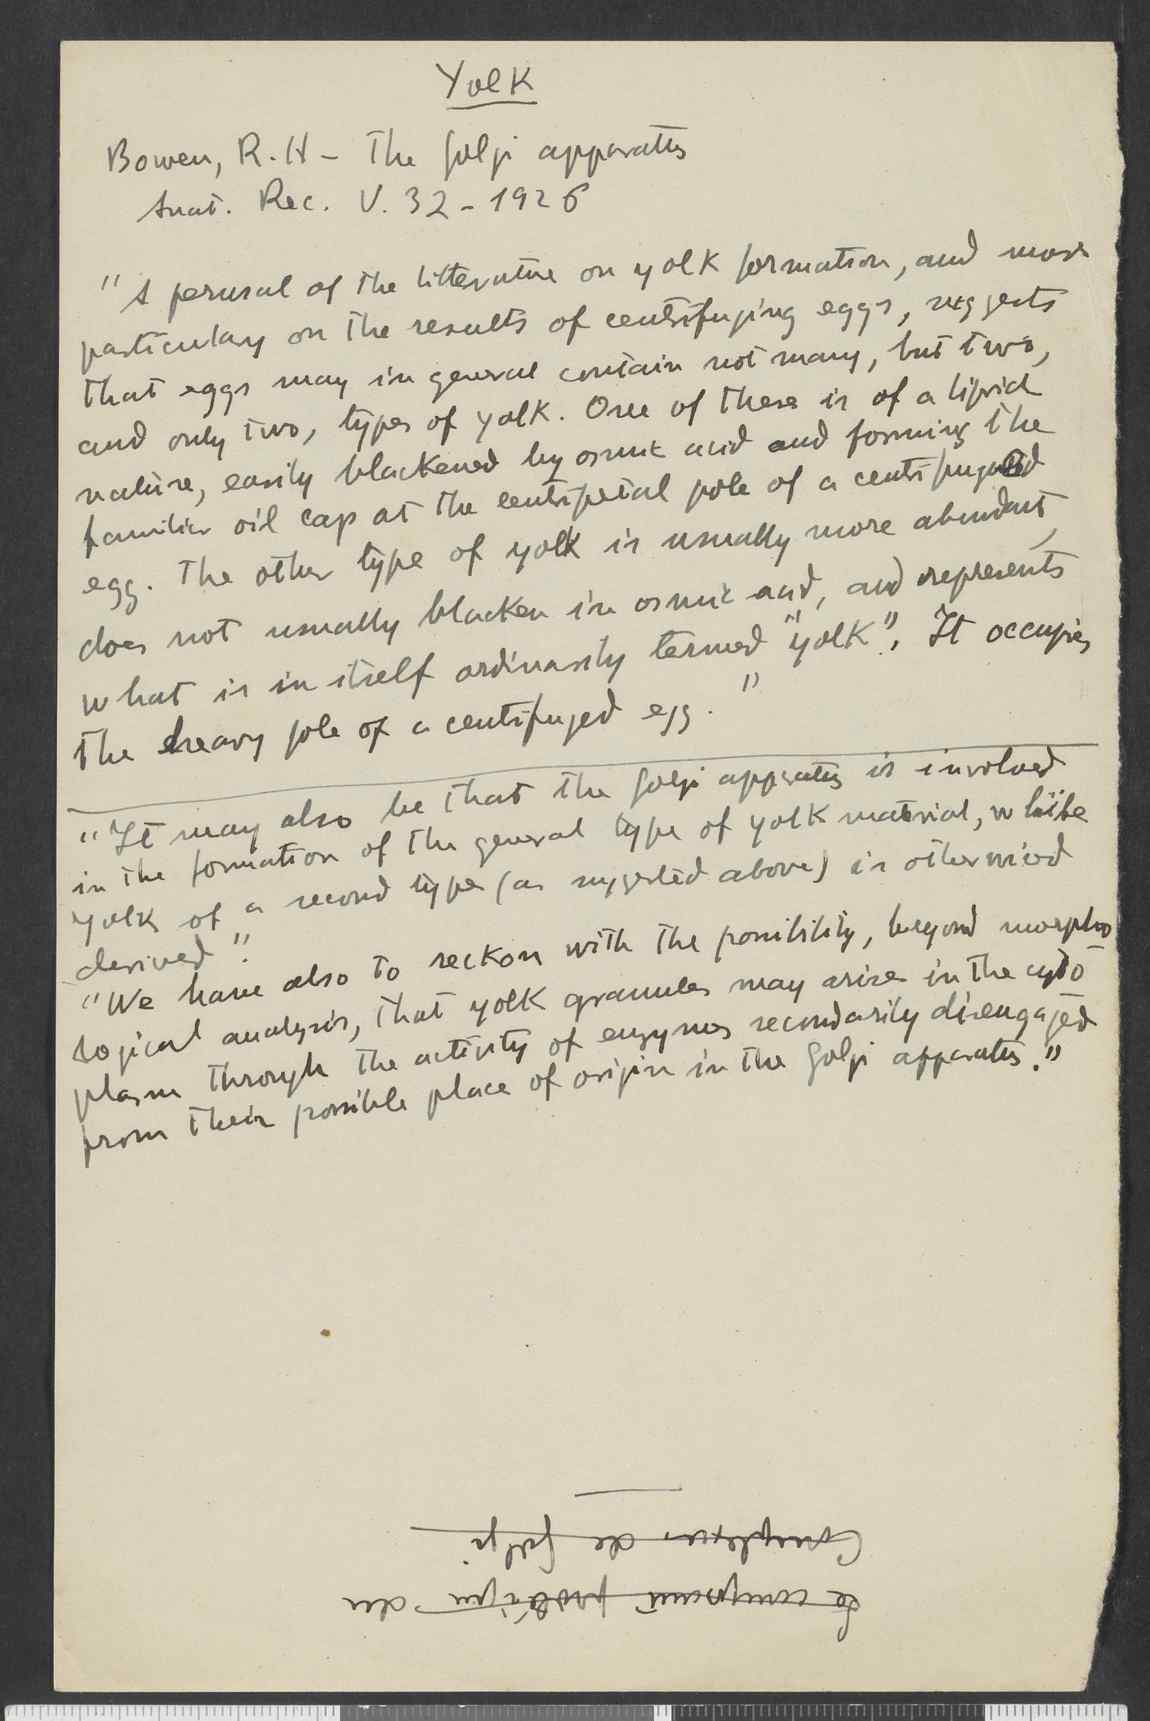 Yolk
Bowen, R.H – The Golgi apparatus
Anat. Rec. V. 32 – 1926
"A perusal of the litterature on yolk formation, and more
particulary on the results of centrifuging eggs, suggests
that eggs may in general contain not many, but two,
and only two, types of yolk. One of these is of a lipid
nature, easily blackened by osmic acid and forming the
familier oil cap at the centripetal pole of a centrifuged
egg. The other type of yolk is usually more abundant,
does not usually blacken in osmic acid, and represents
what is in itself ordinarily termed "yolk". It occupies
the heavy pole of a centrifuged egg."
"It may also be that the Golgi apparatus is involved
in the formation of the general type of yolk material, while
yolk of a second type (as suggested above) is otherwised
derived".
"We have also to reckon with the possibility, beyond morpho
logical analysis, that yolk granules may arise in the cyto
plasm through the activity of enzymes secondarily disengaged
from their possible place of origin in the Golgi apparatus."
Le composant protéique du
Complexe de Golgi